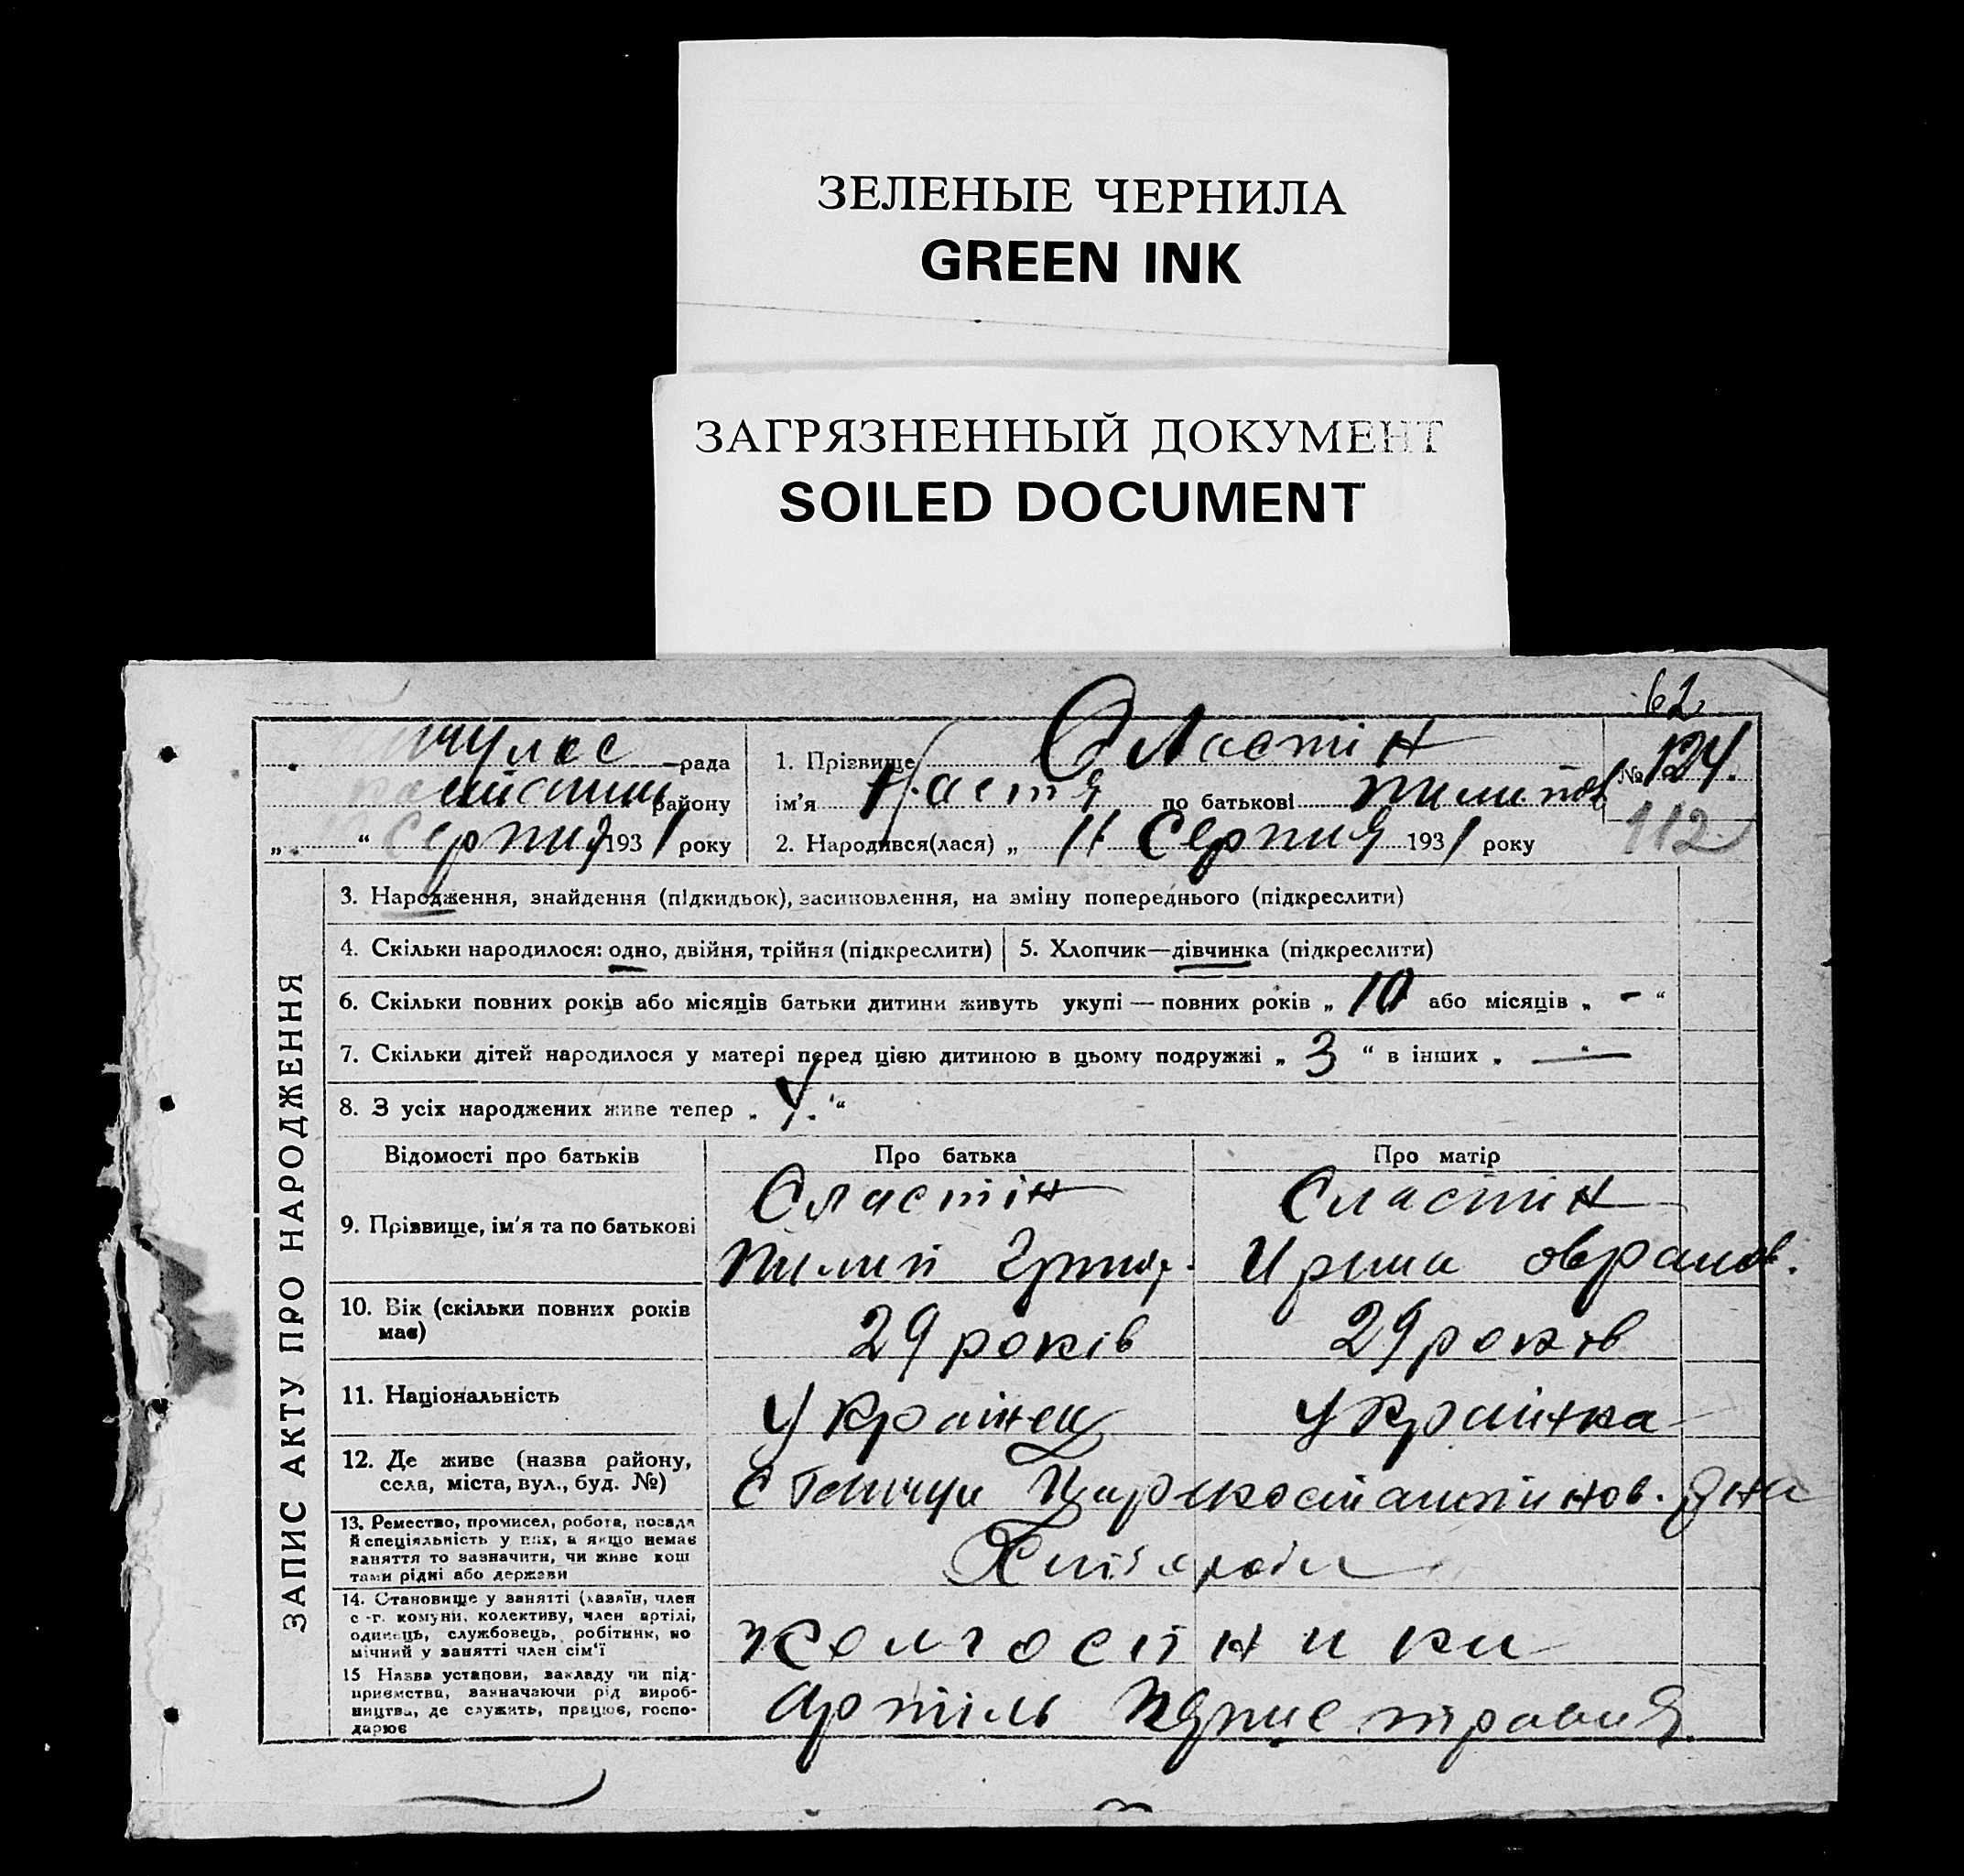 ЗЕЛЕНЫЕ ЧЕРНИЛА
GREEN INK
ЗАГРЯЗНЕННЫЙ ДОКУМЕНТ
SOILED DOCUMENT
62
рада
району
„ “ Серпня 1931 року
1. Прізвище Сластін
ім'я Настя по батькові Пилипов
2. Народився(лася) „ 11 Серпня 1931 року
№ 124.
112
ЗАПИС АКТУ ПРО НАРОДЖЕННЯ
3. Народження, знайдення (підкидьок), засиновлення, на зміну попереднього (підкреслити)
4. Скільки народилося: одно, двійня, трійня (підкреслити) 5. Хлопчик—дівчинка (підкреслити)
6. Скільки повних років або місяців батьки дитини живуть укупі — повних років „ 10 або місяців „ - “
7. Скільки дітей народилося у матері перед цією дитиною в цьому подружжі „ 3 “ в інших „ —
8. З усіх народжених живе тепер „ 4. “
Відомості про батьків Про батька Про матір
9. Прізвище, ім'я та по батькові
Сластін Сластін
Пилип Ирина
10. Вік (скільки повних років має)
29 років 29 років
11. Національність
Українец Українка
12. Де живе (назва району, села, міста, вул., буд. №)
с Царекостантинов. р на
13. Ремество, промисел, робота, посада й спеціяльність у них, а якщо немає заняття то зазначити, чи живе коштами рідні або держави
Хліборóби
14. Становище у занятті (хазяїн, член с.-г. комуни, колективу, член артілі, одинець, службовець, робітник, помічний у занятті член сім'ї
колгоспники
15 Назва установи, закладу чи підприємства, зазначаючи рід виробництва, де служить, працює, господарює
Артіль Перше травня